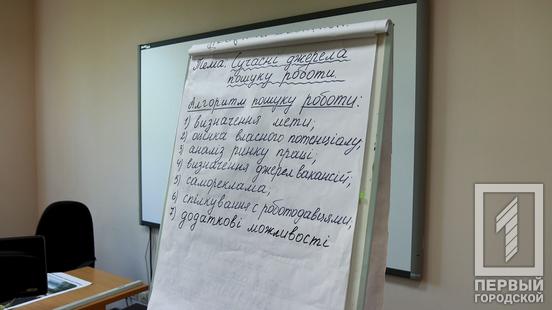 Тема: Сучасні джерела
пошуку роботи
Алгоритм пошуку роботи:
1) визначення мети;
2) оцінка власного потенціалу;
3) аналіз ринку праці;
4) визначення джерел вакансій;
5) самореклама;
6) спілкування с роботодавцями;
7) додаткові можливості
1
ПЕРВЫЙ
ГОРОДСКОЙ